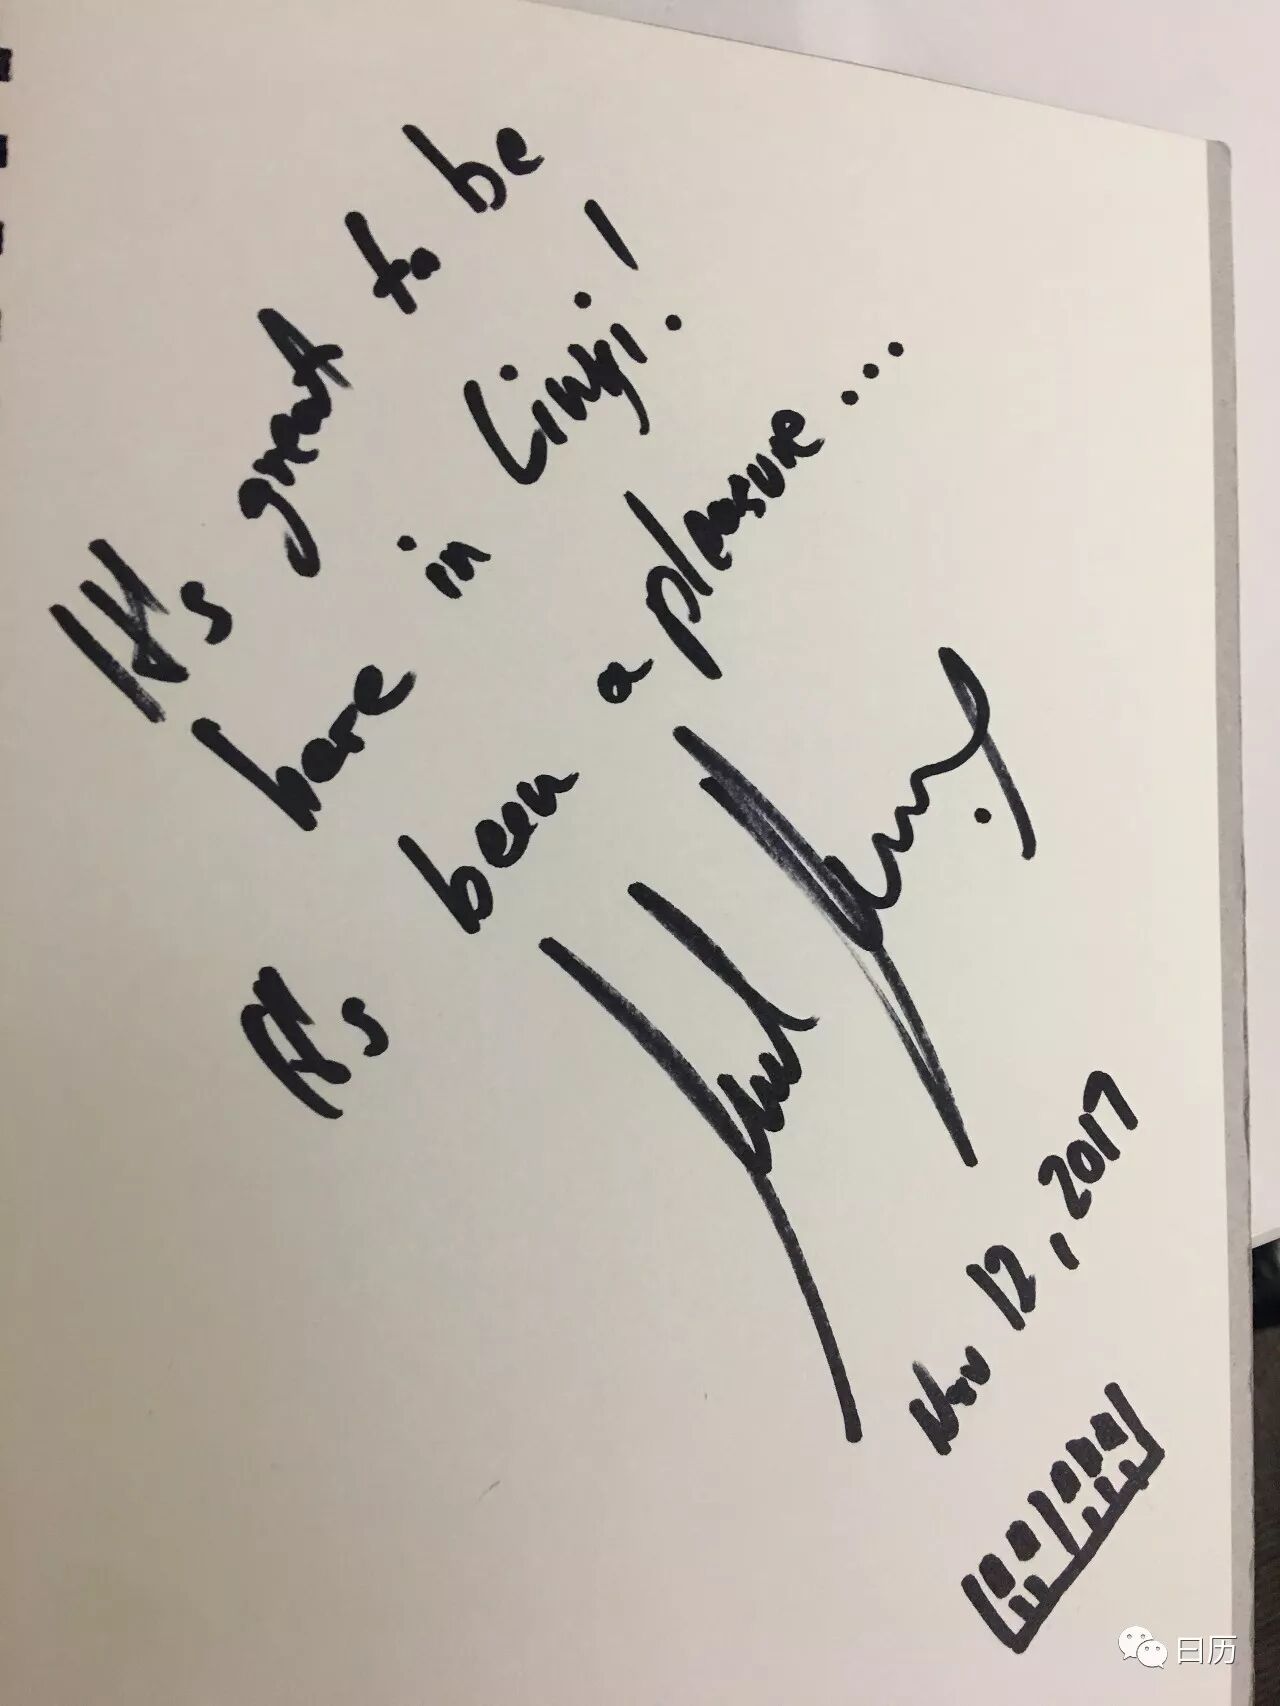 It's great to be
here in Linyi!
It's been a pleasure...
Nov 12, 2017
日历